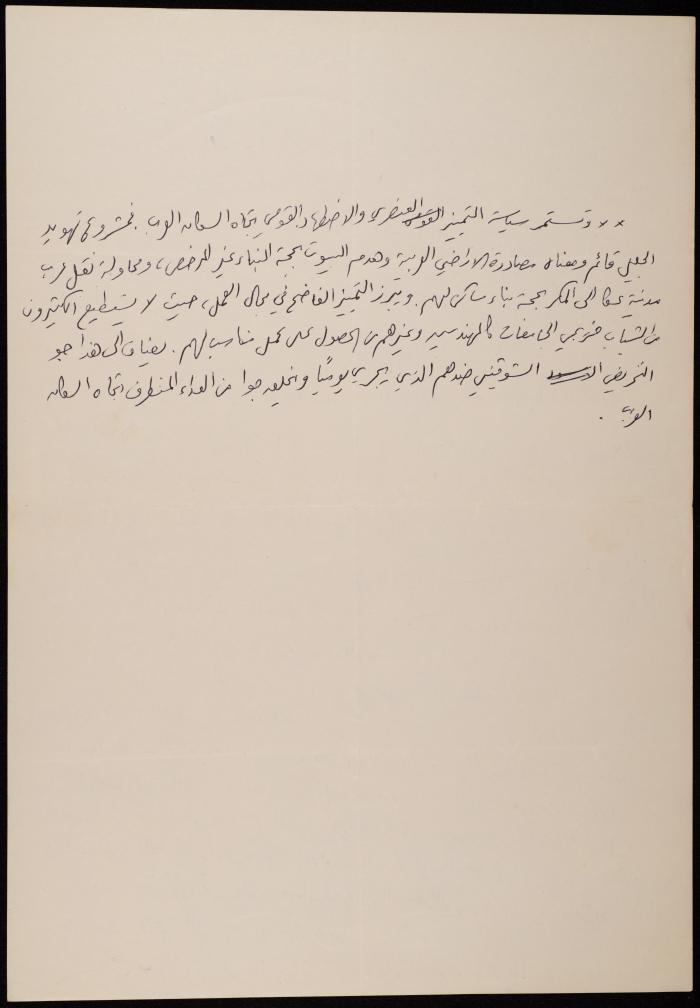 ×× وتستمر سياسة التمييز العنصري والاضطهاد القومي تجاه السكان العرب. فمشروع تهويد
الجليل قائم ومعناه مصادرة الاراضي العربية وهدم البيوت بحجة البناء غير المرخص، ومحاولة نقل عرب
مدينة عكا الى المكر بحجة بناء مساكن لهم. ويبرز التمييز الفاضح في مجال العمل، حيث لا يستطيع الكثيرون
من الشباب خريجي الجامعات كالمهندسين وغيرهم من الحصول على عمل مناسب لهم. يضاف الى هذا جو
التحريض الشوفيني ضدهم الذي يجري يوميًا ويخلق جوا من العداء المتطرف تجاه السكان
العرب.